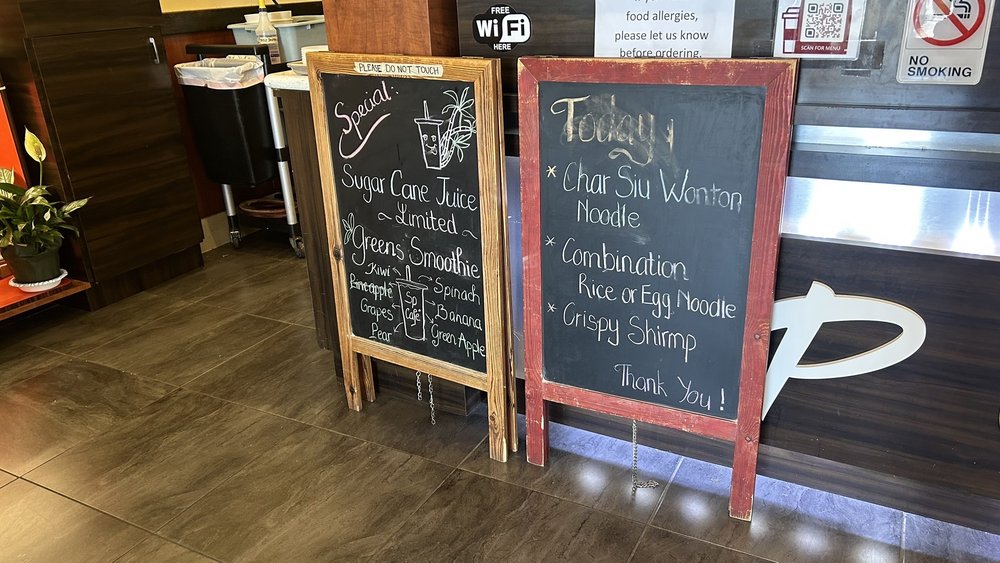 FREE
WiFi
HERE
food allergies,
please let us know
before ordering.
SCAN FOR MENU
NO
SMOKING
PLEASE DO NOT TOUCH
Special:
Sugar Cane Juice
~ Limited ~
Greens Smoothie
Kiwi
Pineapple
Grapes
Pear
Sp
Cafe
Spinach
Banana
Green Apple
Today
* Char Siu Wonton
Noodle
* Combination
Rice or Egg Noodle
* Crispy Shirmp
Thank You!
P